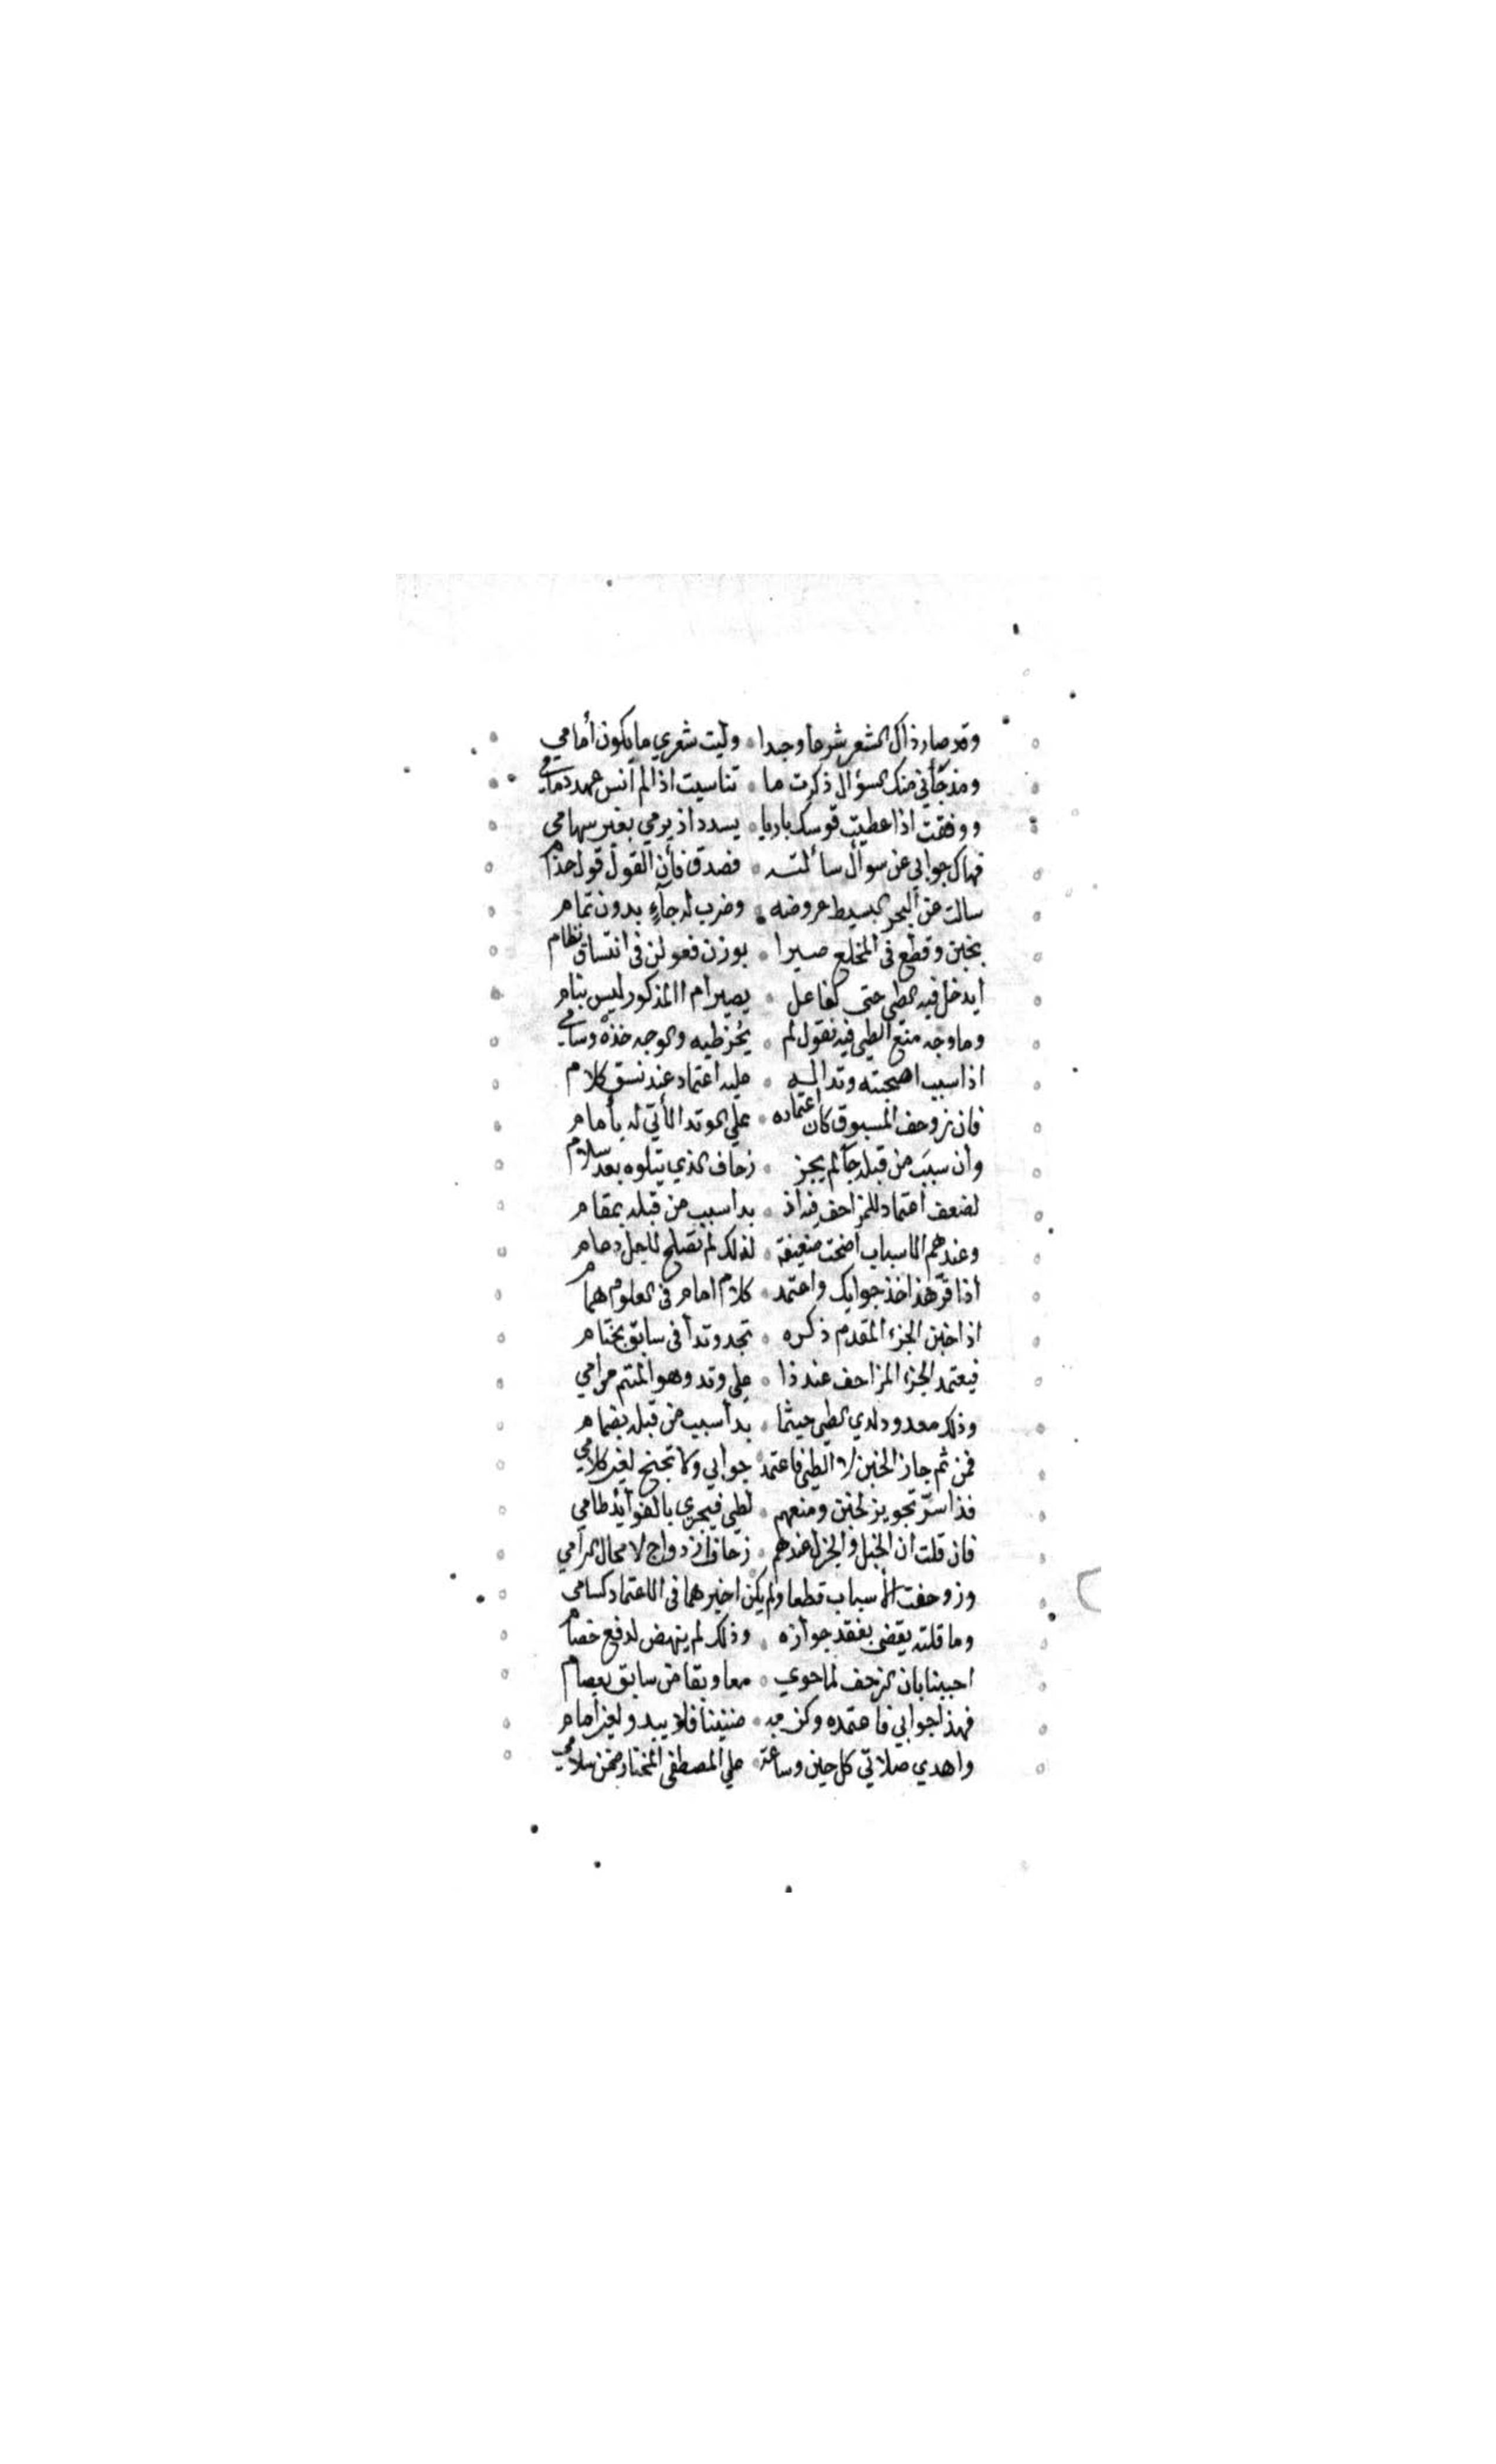 وقد صار ذاك الشعر شرحا وجدا وليت شعري ما يكون أمامي
ومذ جآني منك السؤال ذكرت ما تناسيت اذا لم أنس عهد ذمامي
ووفقت اذ اعطيت قوسك باريا يسدد اذ يرمي بغير سهامي
فهاك جوابي عن سوال سألته فصدق فأن القول قول حذام
سالت عن البحر البسيط عروضه وضرب له جآء بدون تمام
بخبن وقطع في المخلع صيرا بوزن فعولن في انتساق نظام
أيدخل فيه الطي حتى كفاعل يصير ام المذكور ليس بتام
وما وجه منع الطي فيه نقول لم يُجز طيه والوجه خذه وسامي
اذا سبب اصحبته وتدا له عليه اعتماد عند نسق كلام
فان زوحف المسبوق كان اعتماده علي الوتد الأتي له بأمام
وأن سبب من قبله جآ لم يجز زحاف الذي يتلوه بعد سلام
لضعف اعتماد للمزاحف فيه اذ بدا سبب من قبله بمقام
وعندهم الاسباب أضحت ضعيفة لذلك لم تصلح لاجل دعام
أذا قرّ هذا خذ جوابك واعتمد كلام امام في العلوم همام
اذا خبن الجزء المقدم ذكره تجد وتدأ في سابق بختام
فيعتمد الجزء المزاحف عند ذا علي وتد وهو المتم مرامي
وذلك معدود لدي الطي حيثما بدأ سبب من قبله بضمام
فمن ثم جاز الخبن لا الطي فاعتمد جوابي ولا تجنح لغير كلامي
فذا سرّ تجويز لخبن ومنعهم لطي فيجري بالفوآيد طامي
فان قلت ان الخبل والجزل عندهم زحاف ازدواج لا محال المرامي
وزوحفت الأسباب قطعا ولم يكن اخيرهما في الاعتماد كسامي
وما قلته يقضي بفقد جوازه وذلك لم ينهض لدفع خصام
اجبينا بان الزحف لما حوي معا وبقا من سابق بعصام
فهذا جوابي فاعتمده وكن به ضنينا فلا يبدو لغير أمام
واهدي صلاتي كل حين وساعة علي المصطفى المختار ضمن سلامي